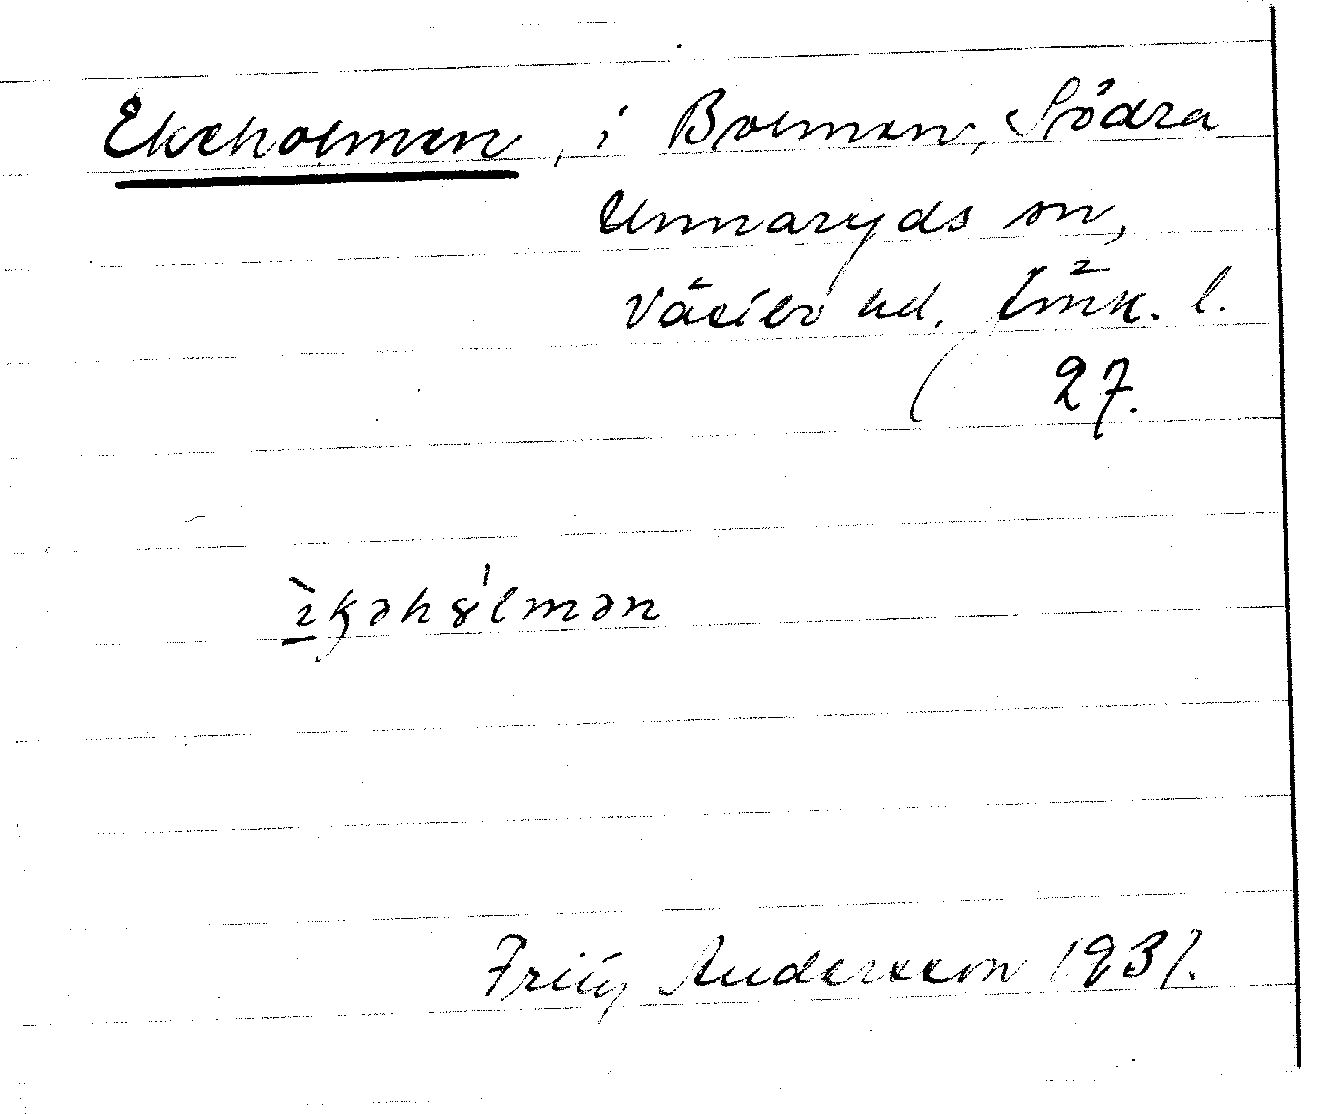 Ekeholmen, i Bolmen, Södra
Unnaryds sn,
Västbo hd. Jmk. l.
27.
ìkəhɤ́lmən
Fritz Andersson 1931.